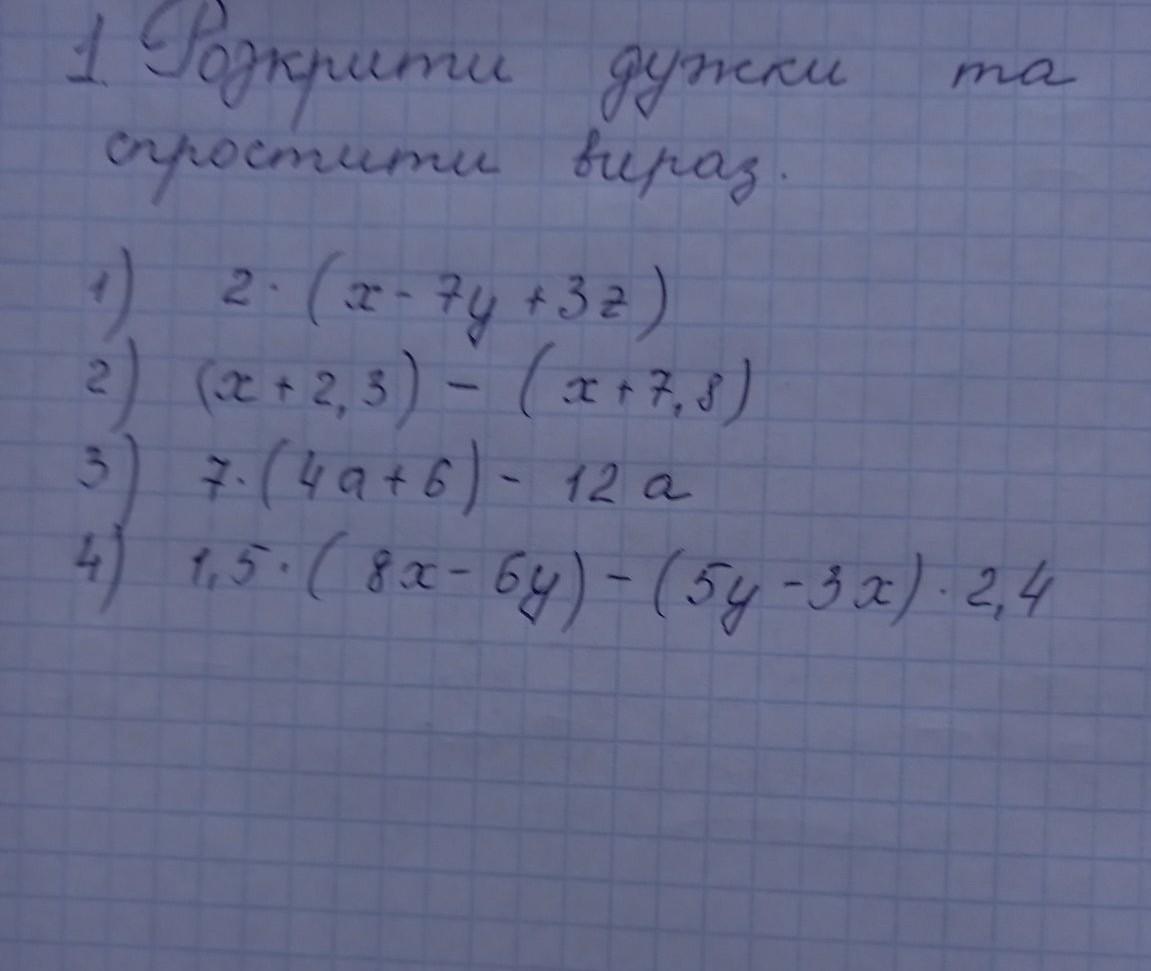 1. Розкрити дужки та
спростити вираз.
1) 2 · (x - 7y + 3z)
2) (x + 2,3) - (x + 7,8)
3) 7 · (4a + 6) - 12 a
4) 1,5 · (8x - 6y) - (5y - 3x) · 2,4